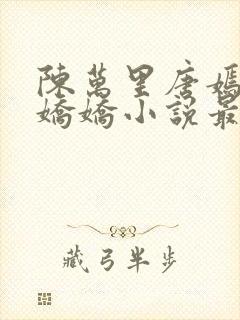 陳萬里唐嫣
嬌嬌小說最
藏弓半步